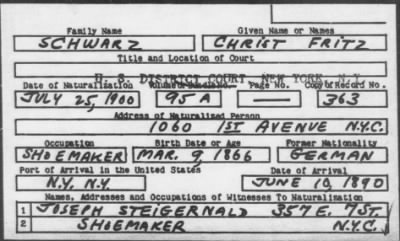 Family Name Given Name or Names
SCHWARZ CHRIST FRITZ
Title and Location of Court
U. S. DISTRICT COURT, NEW YORK, N.Y.
Date of Naturalization Volume or Bundle No. Page No. Copy of Record No.
JULY 25, 1900 95 A — 363
Address of Naturalized Person
1060 1ST AVENUE N.Y.C.
Occupation Birth Date or Age Former Nationality
SHOEMAKER MAR. 9, 1866 GERMAN
Port of Arrival in the United States Date of Arrival
N.Y. N.Y. JUNE 10, 1890
Names, Addresses and Occupations of Witnesses To Naturalization
1 JOSEPH STEIGERNALD 357 E. 7 ST.
2 SHOEMAKER N.Y.C.